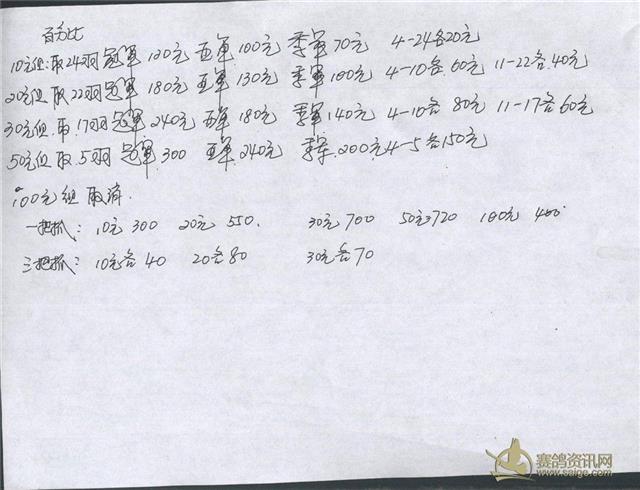 百分比
10元组:取24羽冠军120元 亚军100元 季军70元 4-24各20元
20元组取22羽冠军180元 亚军130元 季军100元 4-10各60元 11-22各40元
30元组.取17羽冠军240元 亚军180元 季军140元 4-10各80元 11-17各60元
50元组取.5羽 冠军.300 亚军240元 季军.200元 4-5各150元
100元组取消.
一把抓: 10元300 20元550. 30元700 50元720 100元400
三把抓: 10元各40 20各80 30元各70
赛鸽资讯网
www.saige.com